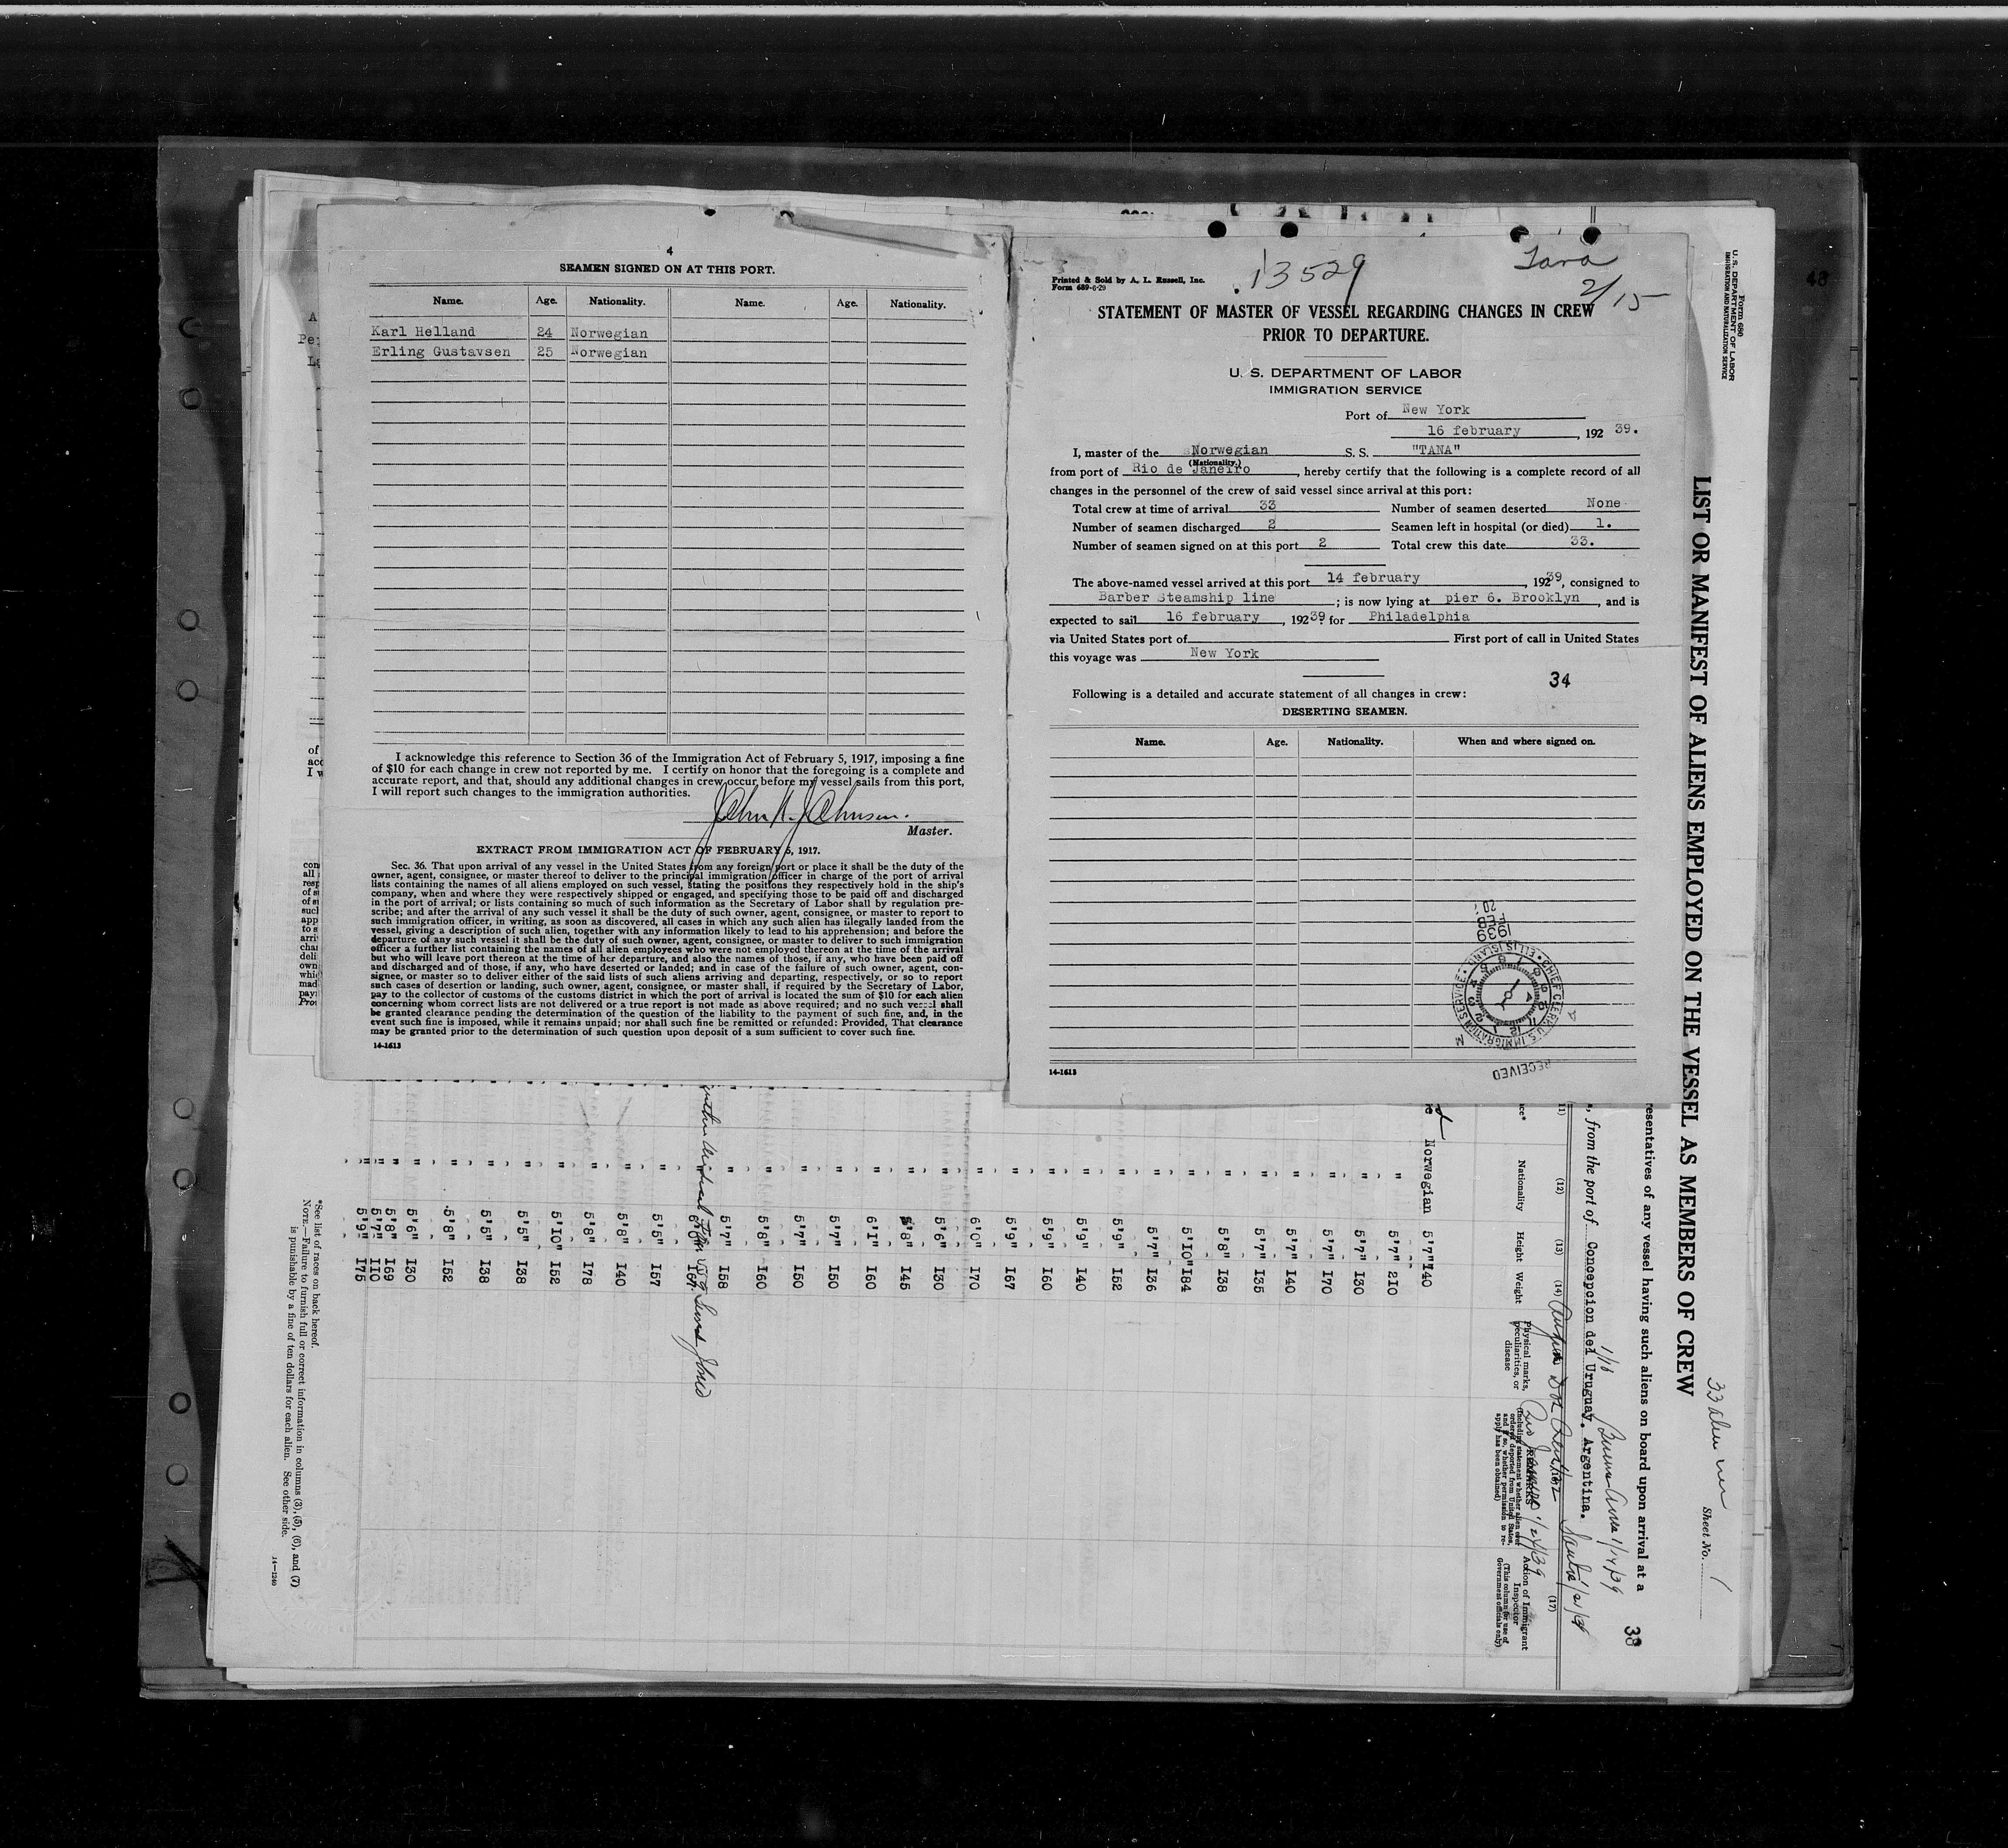 4
SEAMEN SIGNED ON AT THIS PORT.
Name. Age. Nationality. Name. Age. Nationality.
Karl Helland 24 Norwegian
Erling Gustavsen 25 Norwegian
I acknowledge this reference to Section 36 of the Immigration Act of February 5, 1917, imposing a fine
of $10 for each change in crew not reported by me. I certify on honor that the foregoing is a complete and
accurate report, and that, should any additional changes in crew occur before my vessel sails from this port,
I will report such changes to the immigration authorities.
Master.
EXTRACT FROM IMMIGRATION ACT OF FEBRUARY 5, 1917.
Sec. 36. That upon arrival of any vessel in the United States from any foreign port or place it shall be the duty of the
owner, agent, consignee, or master thereof to deliver to the principal immigration officer in charge of the port of arrival
lists containing the names of all aliens employed on such vessel, stating the positions they respectively hold in the ship's
company, when and where they were respectively shipped or engaged, and specifying those to be paid off and discharged
in the port of arrival; or lists containing so much of such information as the Secretary of Labor shall by regulation pre-
scribe; and after the arrival of any such vessel it shall be the duty of such owner, agent, consignee, or master to report to
such immigration officer, in writing, as soon as discovered, all cases in which any such alien has illegally landed from the
vessel, giving a description of such alien, together with any information likely to lead to his apprehension; and before the
departure of any such vessel it shall be the duty of such owner, agent, consignee, or master to deliver to such immigration
officer a further list containing the names of all alien employees who were not employed thereon at the time of the arrival
but who will leave port thereon at the time of her departure, and also the names of those, if any, who have been paid off
and discharged and of those, if any, who have deserted or landed; and in case of the failure of such owner, agent, con-
signee, or master so to deliver either of the said lists of such aliens arriving and departing, respectively, or so to report
such cases of desertion or landing, such owner, agent, consignee, or master shall, if required by the Secretary of Labor,
pay to the collector of customs of the customs district in which the port of arrival is located the sum of $10 for each alien
concerning whom correct lists are not delivered or a true report is not made as above required; and no such vessel shall
be granted clearance pending the determination of the question of the liability to the payment of such fine, and, in the
event such fine is imposed, while it remains unpaid; nor shall such fine be remitted or refunded: Provided, That clearance
may be granted prior to the determination of such question upon deposit of a sum sufficient to cover such fine.
14-1613
Printed & Sold by A. L. Russell, Inc.
Form 689-6-29
13529
Tana
2/15
STATEMENT OF MASTER OF VESSEL REGARDING CHANGES IN CREW
PRIOR TO DEPARTURE.
U. S. DEPARTMENT OF LABOR
IMMIGRATION SERVICE
Port of New York
16 february, 192 39.
I, master of the Norwegian S. S. "TANA"
(Nationality.)
from port of Rio de Janeiro, hereby certify that the following is a complete record of all
changes in the personnel of the crew of said vessel since arrival at this port:
Total crew at time of arrival 33 Number of seamen deserted None
Number of seamen discharged 2 Seamen left in hospital (or died) 1.
Number of seamen signed on at this port 2 Total crew this date 33.
The above-named vessel arrived at this port 14 february, 192 39, consigned to
Barber Steamship line; is now lying at pier 6. Brooklyn, and is
expected to sail 16 february, 192 39. for Philadelphia
via United States port of First port of call in United States
this voyage was New York
34
Following is a detailed and accurate statement of all changes in crew:
DESERTING SEAMEN.
Name. Age. Nationality. When and where signed on.
1939
FEB
20
CHIEF CLERK, U.S. IMMIGRATION SERVICE • ELLIS ISLAND
RECEIVED
14-1613
48
Form 680
U. S. DEPARTMENT OF LABOR
IMMIGRATION AND NATURALIZATION SERVICE
LIST OR MANIFEST OF ALIENS EMPLOYED ON THE VESSEL AS MEMBERS OF CREW
Sheet No. 1
resentatives of any vessel having such aliens on board upon arrival at a
38
, from the port of Concepcion del Uruguay. Argentina.
1/16
1/14/39
(12) (13) (14) (17)
Nationality Height Weight
Physical marks, peculiarities, or disease
REMARKS
1/24/39
Action of Immigrant Inspector
(This column for use of Government officials only)
Norwegian 5'7" 140
" 5'7" 210
" 5'7" 130
" 5'7" 170
" 5'7" 140
" 5'7" 135
" 5'8" 138
" 5'10" 184
" 5'7" 136
" 5'9" 152
" 5'9" 140
" 5'9" 160
" 5'9" 167
" 6'0" 170
" 5'6" 130
" 5'8" 145
" 6'1" 160
" 5'7" 150
" 5'7" 150
" 5'8" 160
" 5'7" 158
" 5'5" 157
" 5'8" 140
" 5'8" 178
" 5'10" 152
" 5'5" 138
" 5'5" 138
" 5'8" 152
" 5'6" 130
" 5'8" 169
" 5'7" 110
" 5'9" 175
*See list of races on back hereof.
NOTE.—Failure to furnish full or correct information in columns (3), (5), (6), and (7)
is punishable by a fine of ten dollars for each alien. See other side.
14-1240